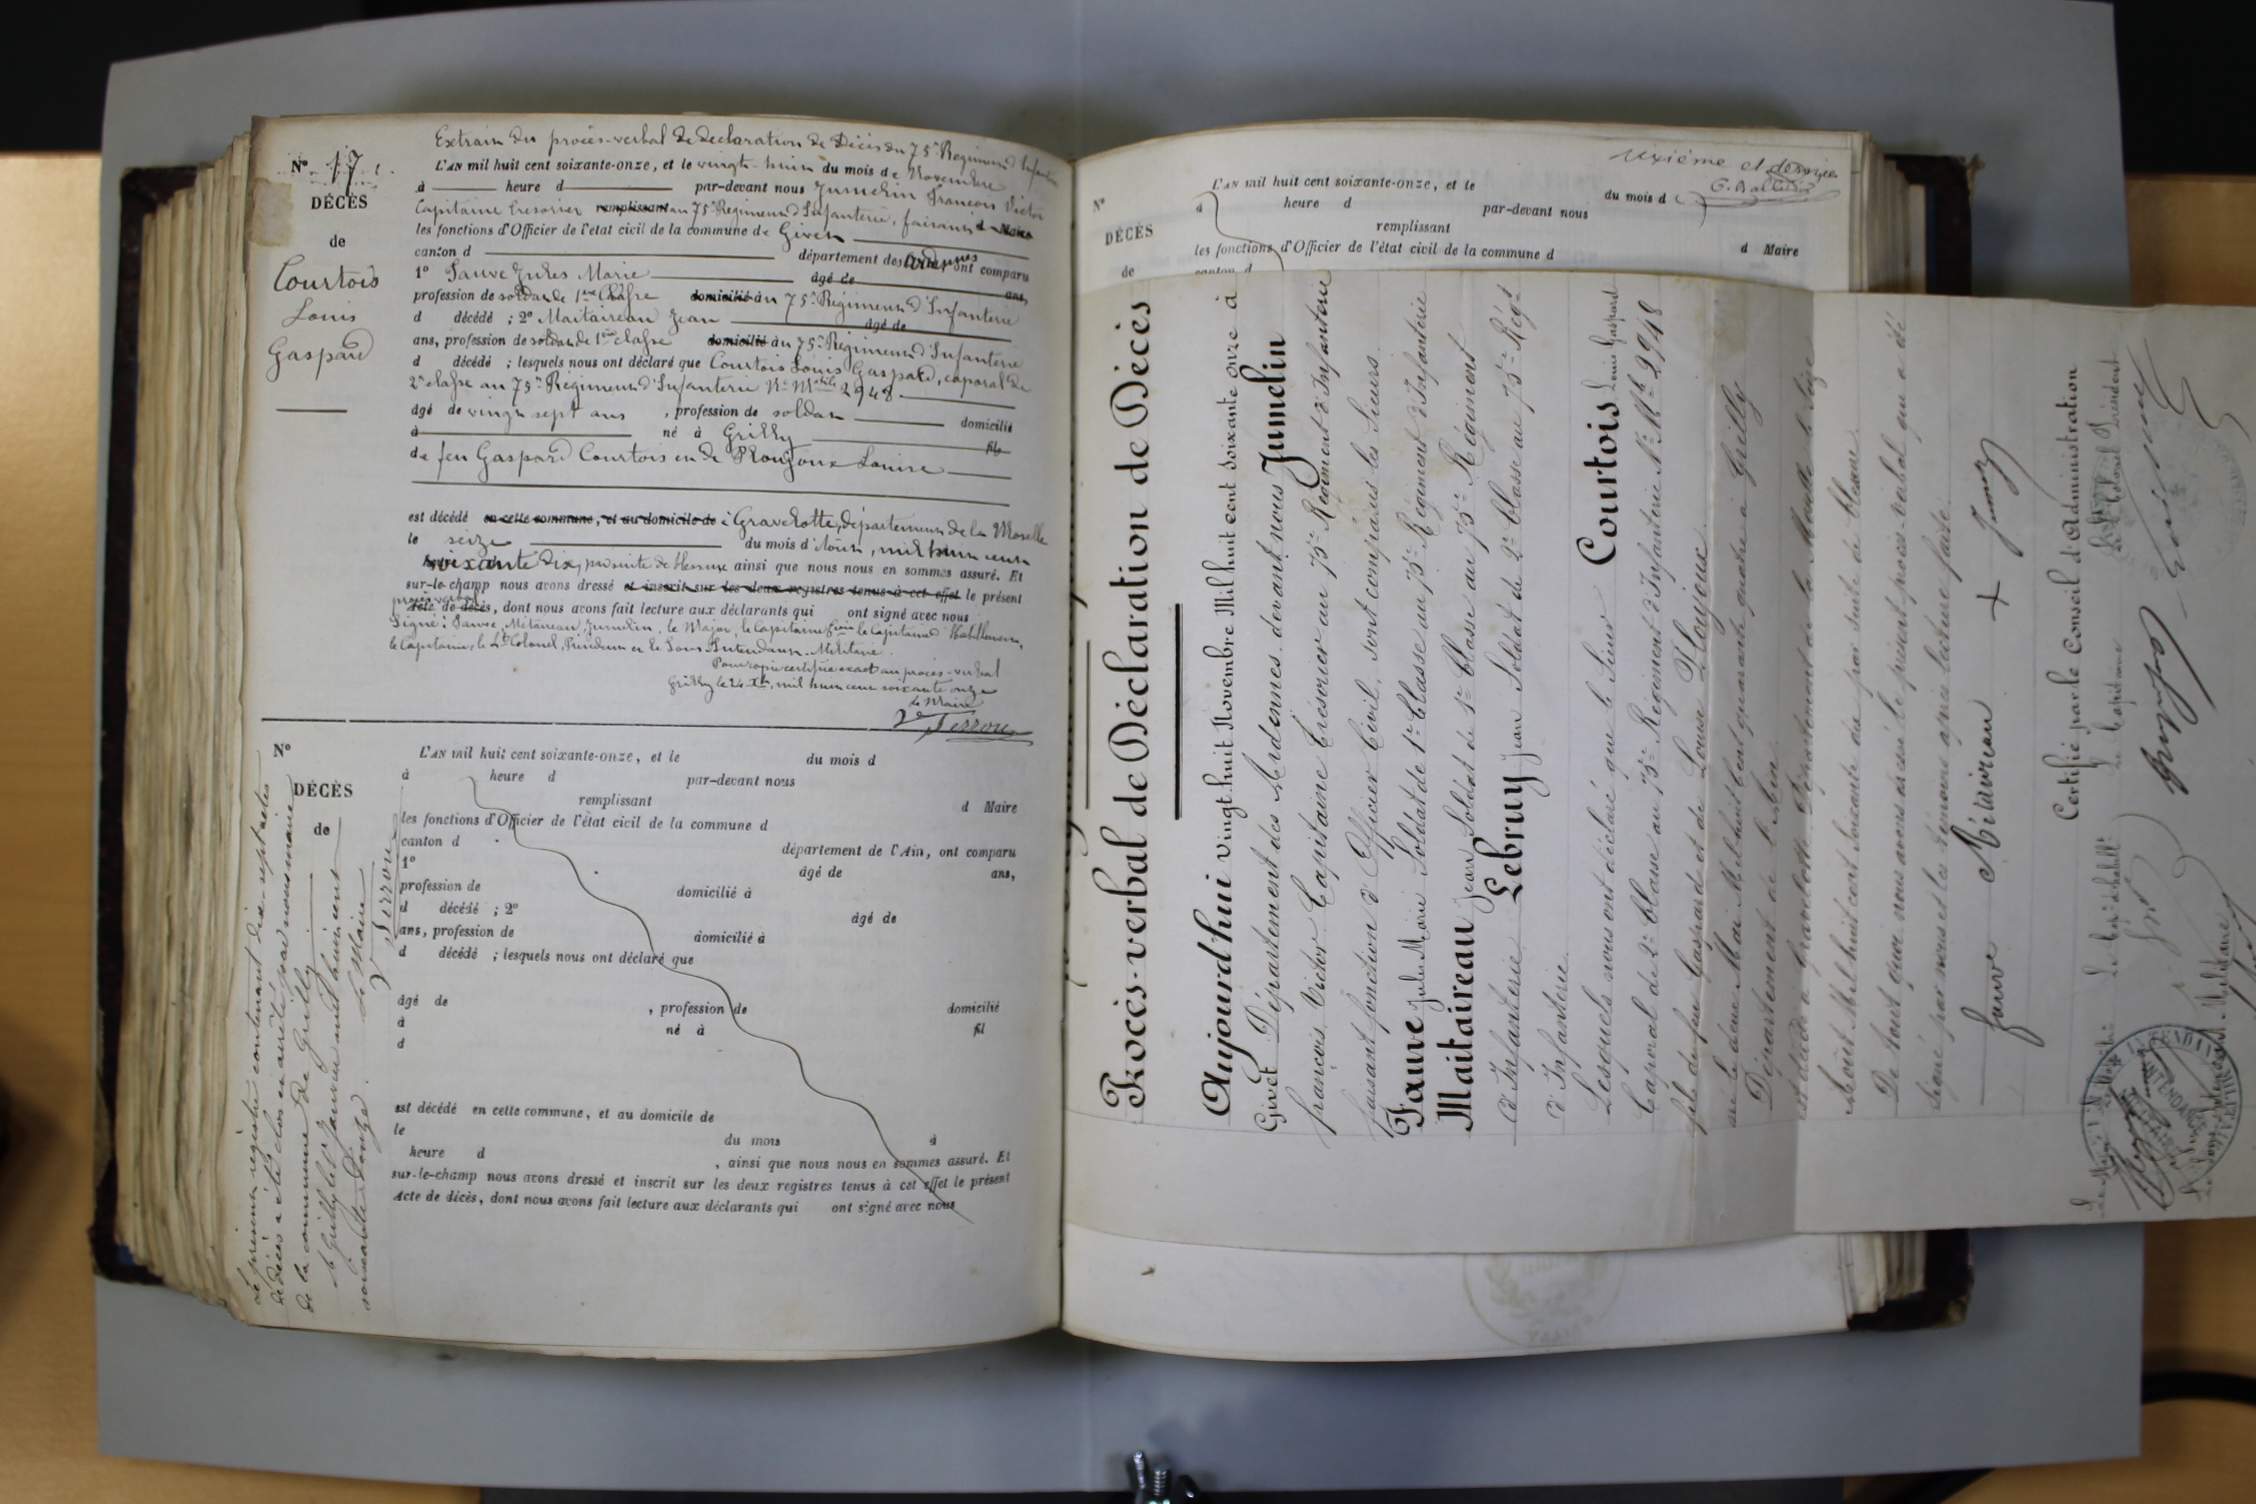 Extrait du procès-verbal de declaration de Décès du 75e Regiment Infanterie
N° 17.
L'AN mil huit cent soixante-onze, et le vingt-huit du mois de Novembre
à heure d par-devant nous Jumelin Francois Victor
DÉCÈS
Capitaine tresorier remplissant au 75e Regiment d'Infanterie, faisant d Maire
les fonctions d'Officier de l'état civil de la commune de Givet
de
canton d département des Ardennes, ont comparu
Courtois
Louis
Gaspard
1° Fauve Jules Marie âgé de ans,
profession de soldat de 1ère Classe domicilié au 75e Régiment d'Infanterie
d décédé ; 2° Maitaireau Jean âgé de
ans, profession de soldat de 1ère classe domicilié au 75e Régiment d'Infanterie
d décédé ; lesquels nous ont déclaré que Courtois Louis Gaspard, caporal de
2e classe au 75e Régiment d'Infanterie N° Mtle 2948
âgé de vingt sept ans , profession de soldat domicilié
à né à Grilly fils
de feu Gaspard Courtois et de Ploujoux Louise
est décédé en cette commune, et au domicile de à Gravelotte, département de la Moselle
le seize du mois d'Août, mil huit cent
soixante dix, par suite de blessure ainsi que nous nous en sommes assuré. Et
sur-le-champ nous avons dressé et inscrit sur les deux registres tenus à cet effet le présent
procès verbal
Acte de décès, dont nous avons fait lecture aux déclarants qui ont signé avec nous
Signé : Fauve, Métaireau, Jumelin, le Major, le Capitaine le Capitaine d'Habillement,
le Capitaine, le Lt Colonel, Président et le Sous Intendant Militaire.
Pour copie certifiée exact au procès-verbal
Grilly le 24 Xbre, mil huit cent soixante onze
Le Maire
Perroux
N°
DÉCÈS
de
L'AN mil huit cent soixante-onze, et le du mois d
à heure d par-devant nous
remplissant d Maire
les fonctions d'Officier de l'état civil de la commune d
canton d département de l'Ain, ont comparu
1° âgé de ans,
profession de domicilié à
d décédé ; 2° âgé de
ans, profession de domicilié à
d décédé ; lesquels nous ont déclaré que
âgé de , profession de domicilié
à né à fil
d
est décédé en cette commune, et au domicile de
le du mois à
heure d , ainsi que nous nous en sommes assuré. Et
sur-le-champ nous avons dressé et inscrit sur les deux registres tenus à cet effet le présent
Acte de décès, dont nous avons fait lecture aux déclarants qui ont signé avec nous
Le présent registre contenant dix-sept actes
de décès a été clos et arrêté par nous maire
de la commune de Grilly
à Grilly le 1er Janvier mil huit cent
soixante-douze. Le Maire
Perroux
et dernier
N°
DÉCÈS
de
L'AN mil huit cent soixante-onze, et le du mois d
à heure d par-devant nous
remplissant
les fonctions d'Officier de l'état civil de la commune d d Maire
canton d
Procès-verbal de Déclaration de Décès
Aujourd'hui vingt huit Novembre Mil huit cent soixante onze à
Givet Département des Ardennes devant nous Jumelin
françois Victor Capitaine trésorier au 75e Régiment d'Infanterie
faisant fonction d'Officier Civil, sont comparus les Sieurs
Fauve Jules Marie Soldat de 1re Classe au 75e Régiment d'Infanterie
Maitaireau Jean Soldat de 1re Classe au 75e Régiment
d'Infanterie Lebruy Jean Soldat de 2e Classe au 75e Régt
d'Infanterie.
Lesquels nous ont déclaré que le Sieur Courtois Louis Gaspard
Caporal de 2e Classe au 75e Régiment d'Infanterie N° Mle 2948
fils de feu Gaspard et de Louise Ploujoux
né le deux Mai Mil huit cent quarante quatre à Grilly
Département de l'Ain
est décédé à Gravelotte Département de la Moselle le Seize
Août Mil huit cent soixante dix par suite de blessure.
De tout quoi nous avons dressé le présent procès-verbal qui a été
signé par nous et les témoins après lecture faite.
Fauve Métaireau + Jumelin
Certifié par le Conseil d'Administration
Le Major Le Capitaine Le Lt Colonel Président
Le Sous Intendant Militaire